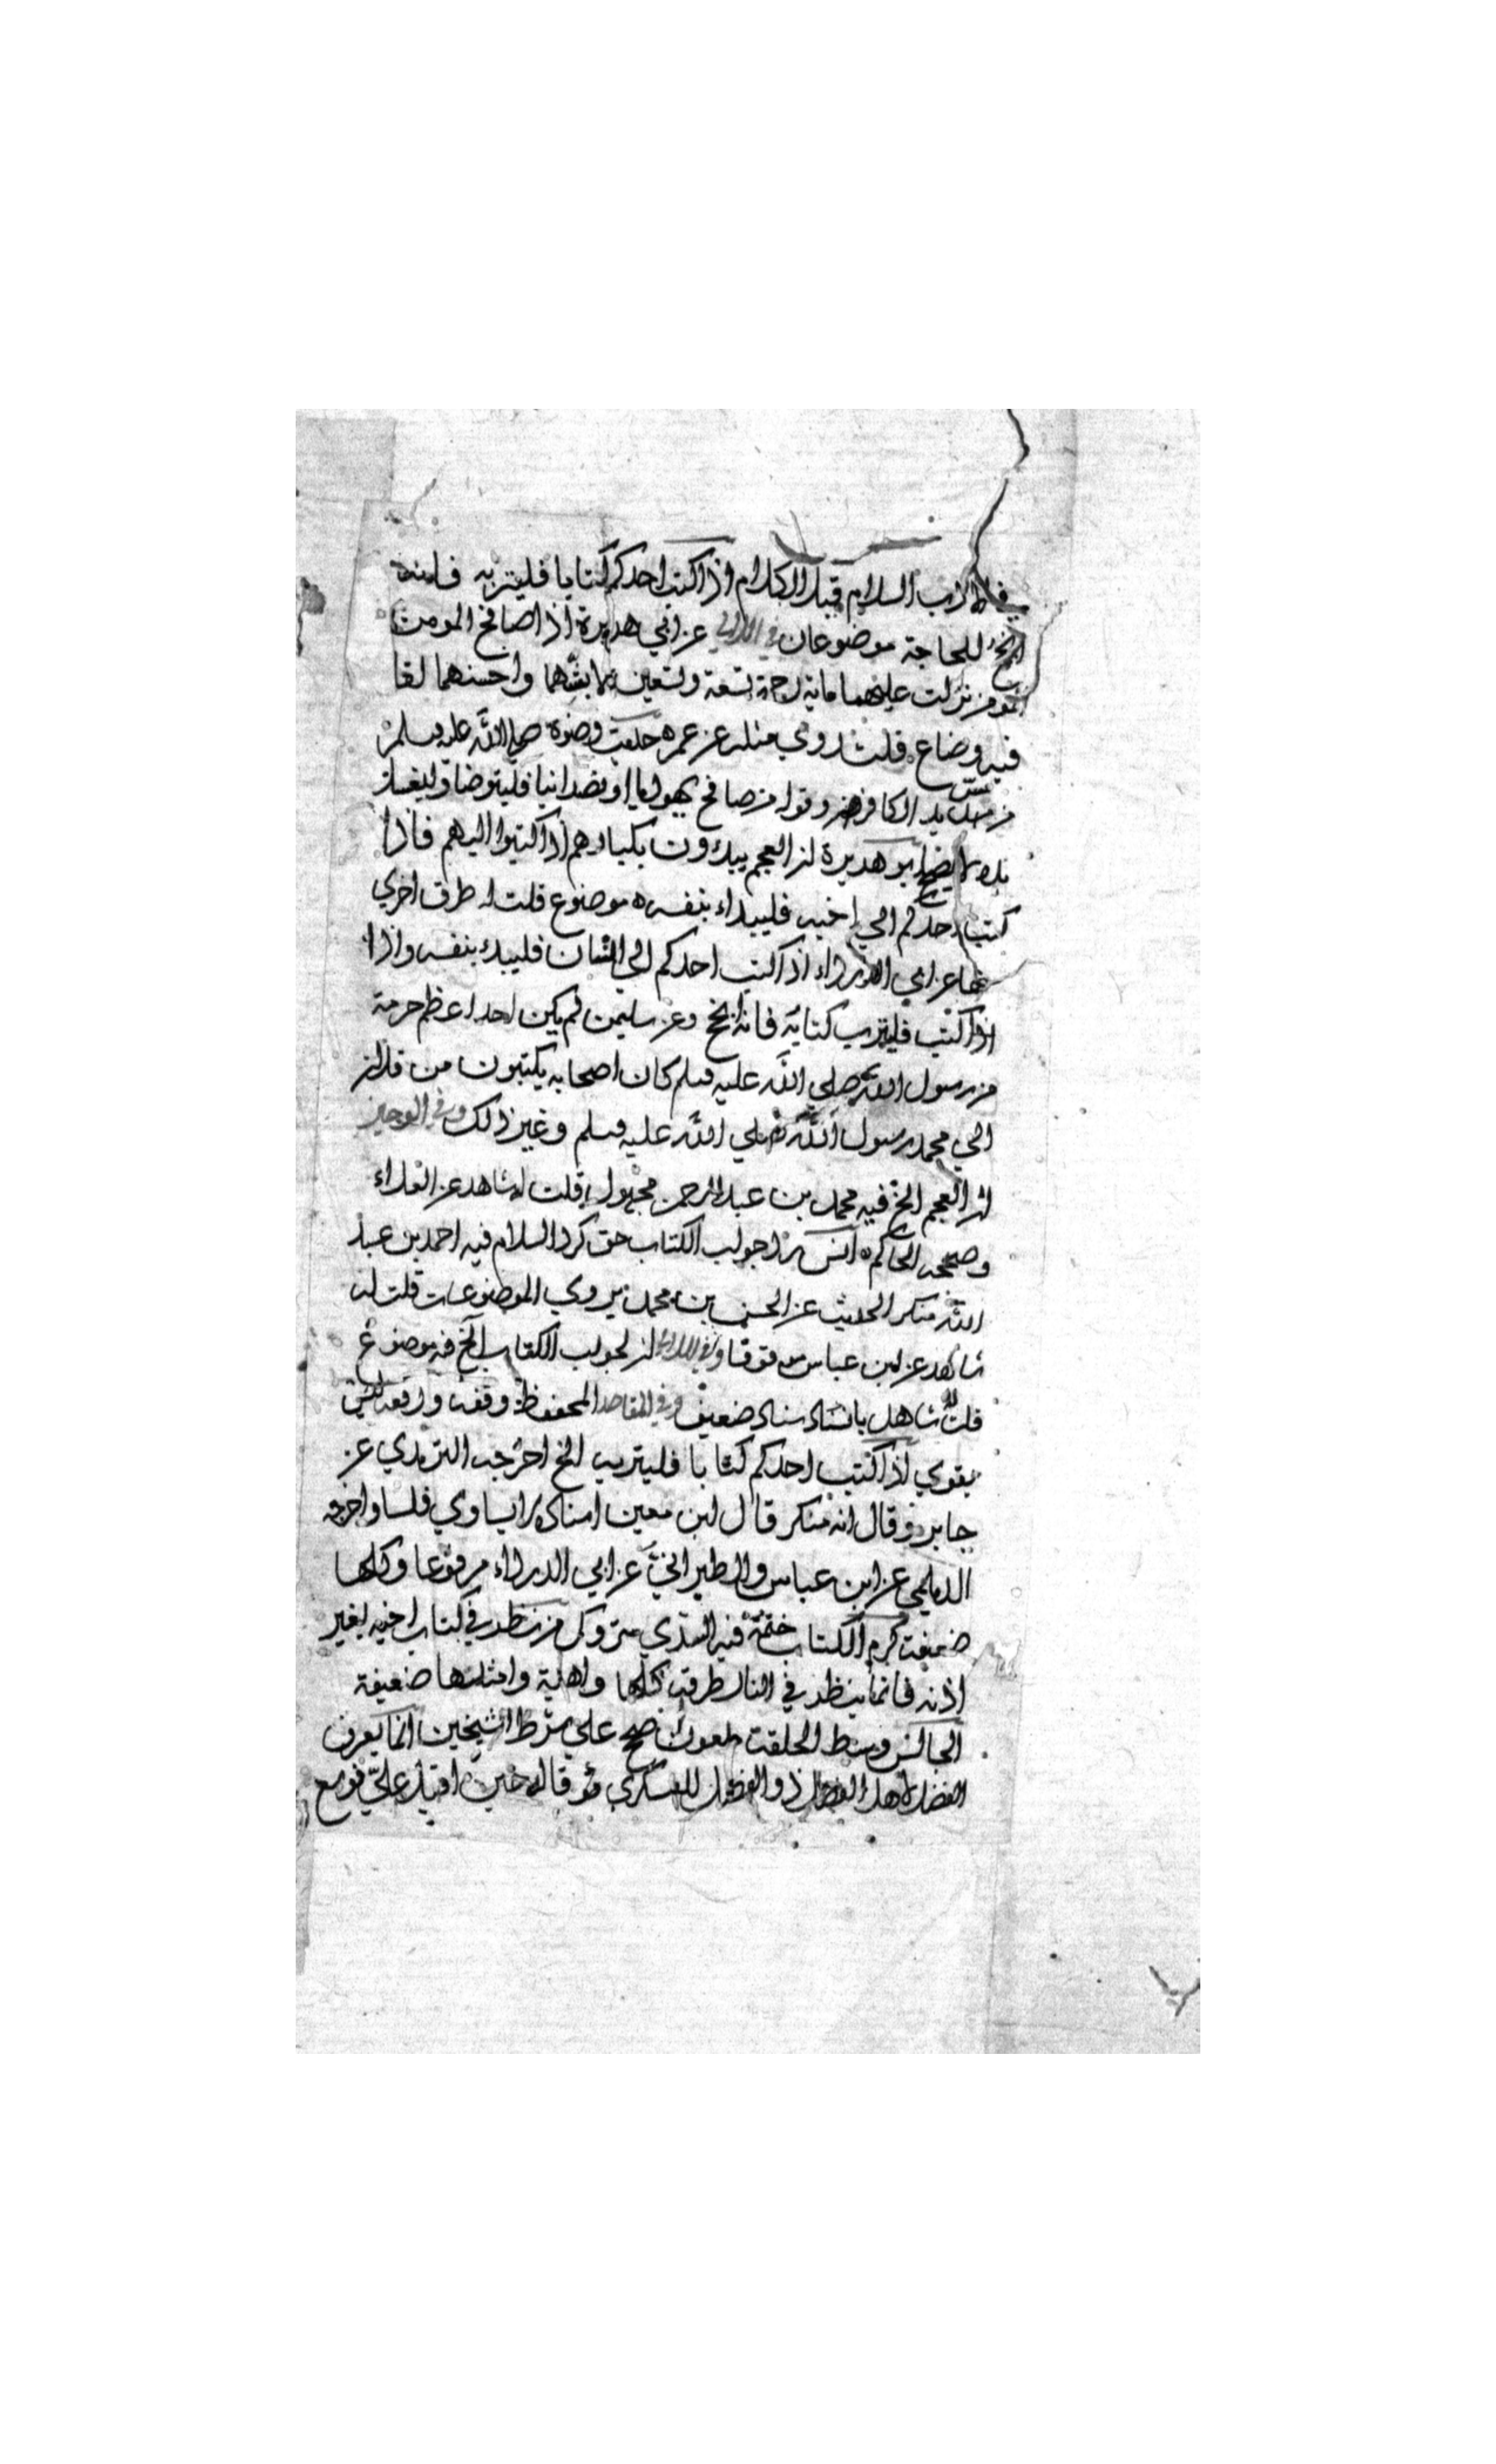 السلام قبل الكلام اذا كتب احدكم كتابا فليتربه فانه
انجح للحاجة موضوعان في عن ابي هريرة اذا صافح المومن
المومن نزلت عليهما ماية رحمة تسعة وتسعين لابشهما واحسنهما لقا
فيه وضاع قلت روي مثله عن عمر صلى الله عليه وسلم
من مس يد الكافر وقوله من صافح يهوديا او نصرانيا فليتوضا وليغسل
يده لا يصح ابو هريرة ان العجم يبدؤن بكبارهم اذا كتبوا اليهم فاذا
كتب احدكم الي اخيه فليبداء بنفسه موضوع قلت له طرق اخري
عن ابي الدرداء اذا كتب احدكم الي انسان فليبدء بنفسه واذا
اذا كتب فليترب كتابه فانه انجح وعن سليمن لم يكن احد اعظم حرمة
من رسول الله صلي الله عليه وسلم كان اصحابه يكتبون من فلان
الي محمد رسول الله صلي الله عليه وسلم وغير ذلك وفي الوجيز
ان العجم الخ فيه محمد بن عبد الرحمن مجهول قلت له شاهد عن العلاء
وصححه الحاكم انس رد جواب الكتاب حق كرد السلام فيه احمد بن عبد
الله منكر الحديث عن الحسن بن محمد يروي الموضوعات قلت له
شاهد عن ابن عباس موقوفا وفي ان لجواب الكتاب الخ فيه موضوع
قلت له شاهد باسناد ضعيف وفي المقاصد المحفوظ وقفه ورفعه ليس
بقوي اذا كتب احدكم كتابا فليترب الخ اخرجه الترمذي عن
جابر وقال انه منكر قال ابن معين اسناده لا يساوي فلسا واخرجه
الديلمي عن ابن عباس والطبراني عن ابي الدرداء مرفوعا وكلها
ضعيفة كرم الكتاب ختمه فيه السدي متروك من نظر في كتاب اخيه بغير
اذنه فانما ينظر في النار طرقه كلها واهية وامثلتها ضعيفة
الجالس وسط الحلقة ملعون صح علي شرط الشيخين انما يعرف
الفضل لاهل الفضل ذو الفضل للعسكري قاله حين اقبل علي فوسع